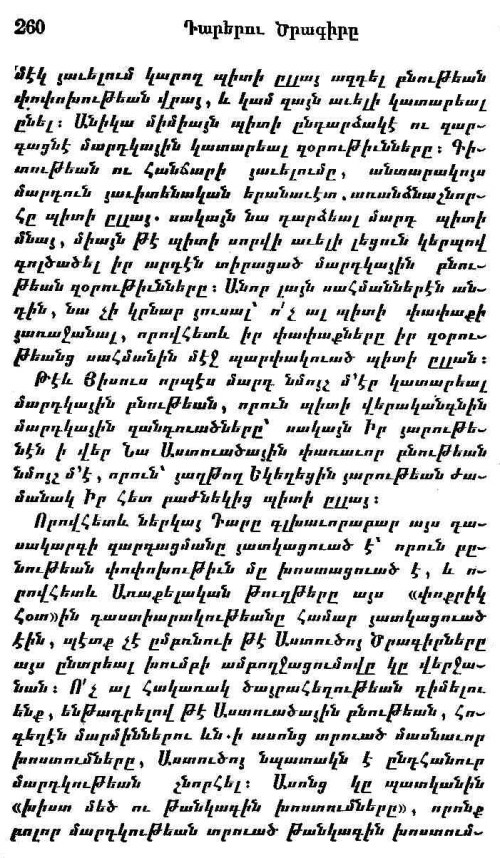 260 Դարերու Ծրագիրը
մէկ յաւելում կարող պիտի ըլլայ ազդել բնութեան
փոփոխութեան վրայ, և կամ զայն աւելի կատարեալ
ընել։ Անիկա միմիայն պիտի ընդարձակէ ու զար-
գացնէ մարդկային կատարեալ զօրութիւնները։ Գի-
տութեան ու Հանճարի յաւելումը, անտարակոյս
մարդուն յաւիտենական երանաւէտ առանձնաշնոր-
հը պիտի ըլլայ. սակայն նա դարձեալ մարդ պիտի
մնայ, միայն թէ պիտի սորվի աւելի լեցուն կերպով
գործածել իր արդէն տիրացած մարդկային բնու-
թեան զօրութիւնները։ Անոր լայն սահմաններէն ան-
դին, նա չի կրնար յուսալ՝ ո՛չ ալ պիտի փափաքի
յառաջանալ, որովհետև իր փափաքները իր զօրու-
թեանց սահմանին մէջ պարփակուած պիտի ըլլան։
Թէև Յիսուս որպէս մարդ նմոյշ մ՚էր կատարեալ
մարդկային բնութեան, որուն պիտի վերականգնին
մարդկային զանգուածները՝ սակայն Իր յարութե-
նէն ի վեր Նա Աստուածային փառաւոր բնութեան
նմոյշ մ՚է, որուն՝ յաղթող Եկեղեցին յարութեան ժա-
մանակ Իր հետ բաժնեկից պիտի ըլլայ։
Որովհետև ներկայ Դարը գլխաւորաբար այս դա-
սակարգի զարգացմանը յատկացուած է՝ որուն բը-
նութեան փոփոխութիւն մը խոստացուած է, և ո-
րովհետև Առաքելական Թուղթերը այս «փոքրիկ
Հօտ»ին դաստիարակութեանը համար յատկացուած
էին, պէտք չէ ըմբռնուի թէ Աստուծոյ Ծրագիրները
այս ընտրեալ խումբի ամբողջացումովը կը վերջա-
նան։ Ո՛չ ալ հակառակ ծայրահեղութեան դիմելու
ենք, ենթադրելով թէ Աստուածային բնութեան, հո-
գեղէն մարմիններու ևն.ի ասոնց տրուած մասնաւոր
խոստումները, Աստուծոյ նպատակն է ընդհանուր
մարդկութեան շնորհել։ Ասոնց կը պատկանին
«խիստ մեծ ու թանկագին խոստումները», որոնք
բոլոր մարդկութեան տրուած թանկագին խոստում-